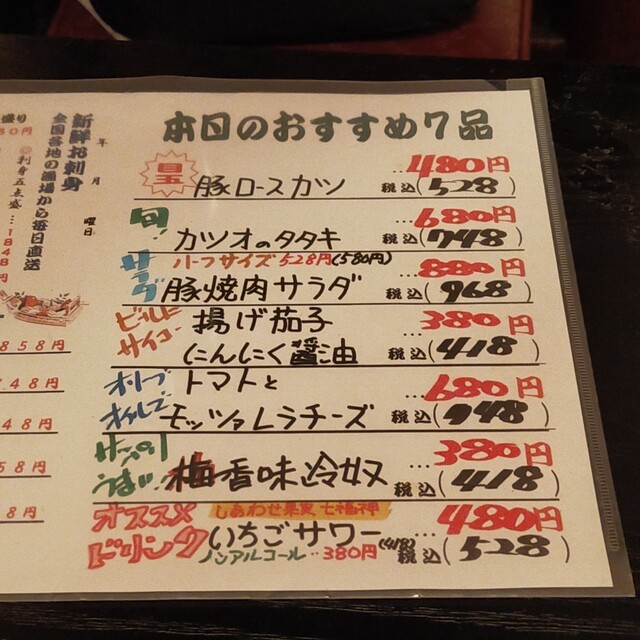 本日のおすすめ7品
目玉 豚ロースカツ …480円 税込(528)
旬! カツオのタタキ …680円 税込(748)
サラダ ハーフサイズ528円(580円)
豚焼肉サラダ …880円 税込(968)
ビールに 揚げ茄子 …380円
サイコー にんにく醤油 税込(418)
オリーブ トマトと …680円
オイルで モッツァレラチーズ 税込(748)
サッパリ …380円
うまい 梅香味冷奴 税込(418)
オススメ しあわせ果実 七福神 …480円
ドリンク いちごサワー 税込(528)
ノンアルコール…380円(418)
年 月 曜日
新鮮お刺身
全国各地の漁場から毎日直送
◎刺身五点盛…1848円
盛り
80円
858円
748円
48円
58円
8円